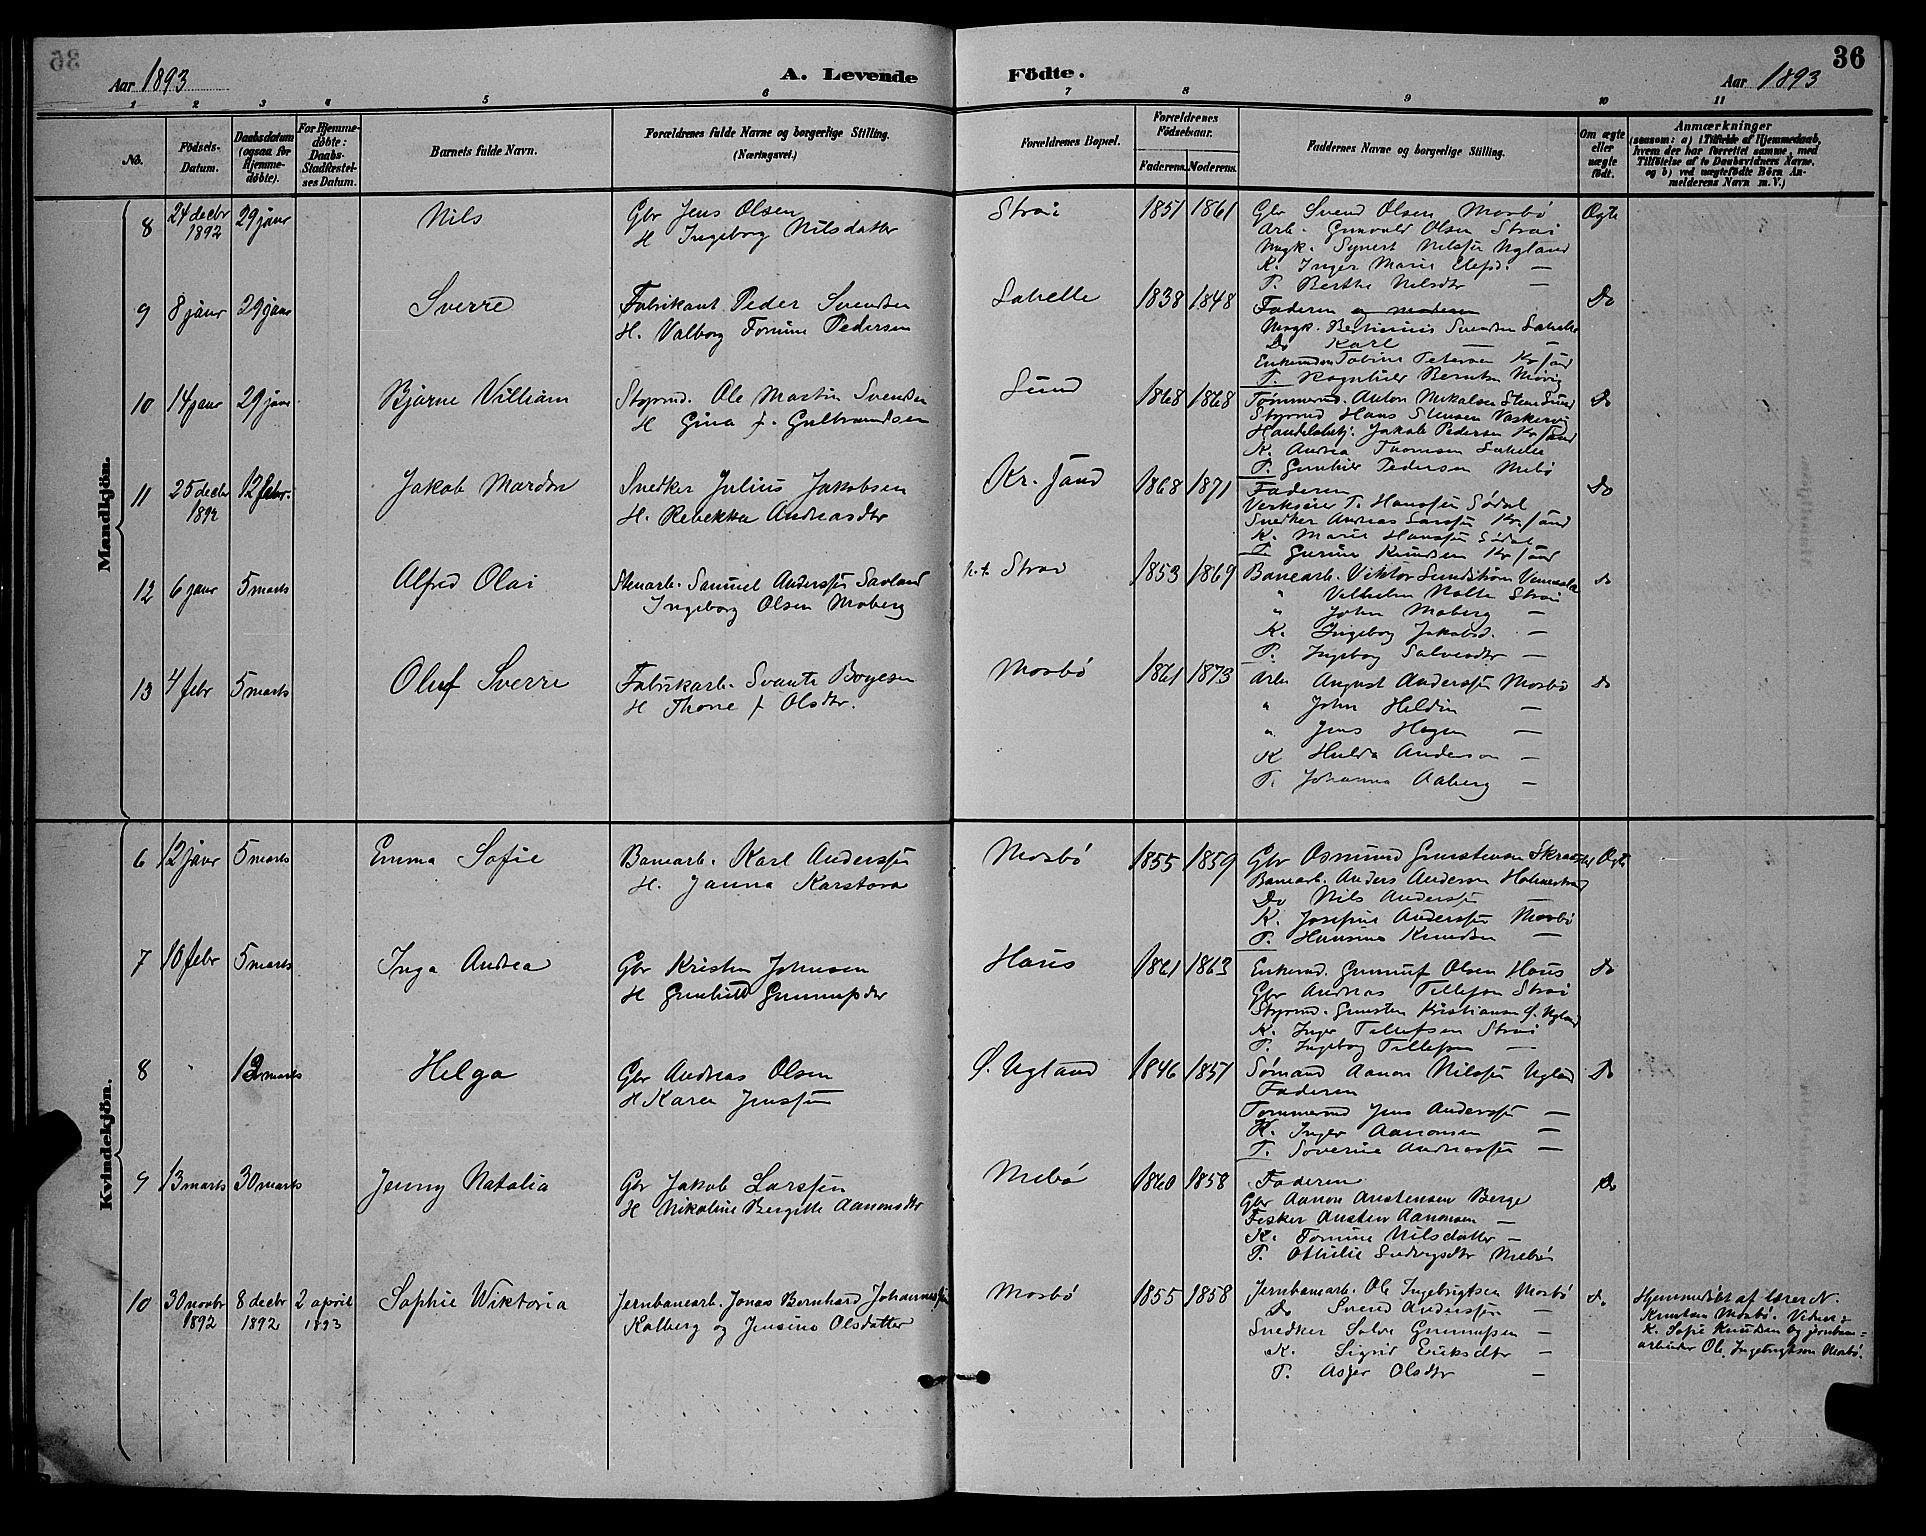 36
Aar 1893
A. Levende Födte.
Aar 1893
1 2 3 4 5 6 7 8 9 10 11
No.
Födsels-Datum.
Daabsdatum (ogsaa for Hjemme-döbte).
For Hjemme-döbte: Daabs-Stadfæstel-ses Datum.
Barnets fulde Navn.
Forældrenes fulde Navne og borgerlige Stilling.
(Næringsvei.)
Forældrenes Bopæl.
Forældrenes Födselsaar.
Faderens. Moderens.
Faddernes Navne og borgerlige Stilling.
Om ægte eller uægte födt.
Anmærkninger
(saasom: a) i Tilfælde af Hjemmedaab,
hvem der har forrettet samme, med
Tilföielse af to Daabsvidners Navne.
og b) ved uægtefödte Börn An-
melderens Navn m. V.)
Mandkjön.
8 24 decbr 1892 29 janr Nils
Gbr Jens Olsen
H Ingeborg Nilsdatter
Strai 1851 1861
Gbr Svend Olsen Mosbö
Arb. Gunvald Olsen Strai
Ungk. Synert Nilssen Ugland
K. Inger Marie —
P. Berthe Nilsdtr —
Ægte
9 8 janr 29 janr Sverre
Fabrikant Peder Svendsen
H. Valborg Tomine Pedersen
1838 1848
Faderen og moderen
Ungk. Svendsen
Do Karl — —
Tobine Petersen Kr sand
P. Ragnhild Berntsen
Do
10 14 janr 29 janr Bjarne Villiam
Styrmd. Ole Martin Svendsen
H Gina f. Gulbrandsen
Sund 1868 1868
Tømmermd. Anton Mikalsen Sund
Styrmd Hans Stensen
Jakob Pedersen Kr sand
K. Andrea Thomsen
P. Gunhild Pedersen Mebö
Do
11 25 decbr 1892 12 febr. Jakob Mardon
Snedker Julius Jakobsen
H. Rebekka Andreasdtr
Kr. sand 1868 1871
Faderen
T. Hanssen Sødal
Snedker Andreas Larssen Kr. sand
K. Marie Hanssen Sødal
P. Gurine Knudsen Kr sand
Do
12 6 janr 5 marts Alfred Olai
Stenarb. Samuel Anderssen
Ingeborg Olsen Moberg
Strai 1853 1869
Banearb. Viktor Sundström
" Vilhelm Nolte Strai
" John Moberg —
K. Ingebog Jakobsd. —
P. Ingebog Salvesdtr —
Do
13 4 febr 5 marts Oluf Sverre
Fabrikarb. Svante Boyesen
H Thone f Olsdtr.
Mosbö 1861 1873
Arb. August Anderssen Mosbö
" John Heldin —
" Jens Hagen —
K Hulda Anderson —
P. Johanna Aaberg —
Do
Kvindekjön.
6 12 janr 5 marts Emma Sofie
Banearb. Karl Anderssen
H. Janna Karstova
Mosbö 1855 1859
Gbr Osmund Gunstensen
Banearb. Anders Anderson Holmestrand
Do Nils Anderssen
K. Josefine Anderssen Mosbö
P. Hansine Knudsen —
Ægte
7 10 febr 5 marts Inga Andrea
Gbr Kristen Johnsen
H Gunhild Gunnufsdtr
Haus 1861 1863
Enkemd. Gunnuf Olsen Haus
Gbr Andreas Tellefsen Strai
Styrmd. Gunsten Kristiansen Ø. Ugland
K. Inger Tellefsen Strai
P. Ingebog Tellefsen —
Do
8 " 12 marts Helga
Gbr Andreas Olsen
H Karen Jenssen
Ø. Ugland 1846 1857
Sømand Aanon Nilssen Ugland
Faderen
Tømmermd Jens Anderssen —
K. Inger Aanonsen —
P. Soverine Andreassen —
Do
9 13 marts 30 marts Jenny Natalia
Gbr Jakob Larssen
H Nikoline Bergitte Aanonsdtr
Mebö 1860 1858
Faderen
Gbr Aanon Anstensen Berge
Fisker Austen Aanonsen —
K. Tomine Nilsdatter —
P. Othilie Ludvigsdtr Mebö
Do
10 30 novbr 1892 8 decbr 1892 2 april 1893 Sophie Wiktoria
Jernbanearb. Jonas Bernhard Johannessen
Kalberg og Jensine Olsdatter
Mosbö 1855 1858
Jernbanearb. Ole Ingebrigtsen Mosbö
Do Svend Anderssen —
Snedker Salve Gunnufsen —
K. Sigrid Eriksdtr —
P. Asger Olsdtr —
Do
Hjemmedöbt af lærer N.
Knutsen Mosbö. Vidner:
K. Sofie Knudsen og jernbane-
arbeider Ole Ingebrigtsen Mosbö.